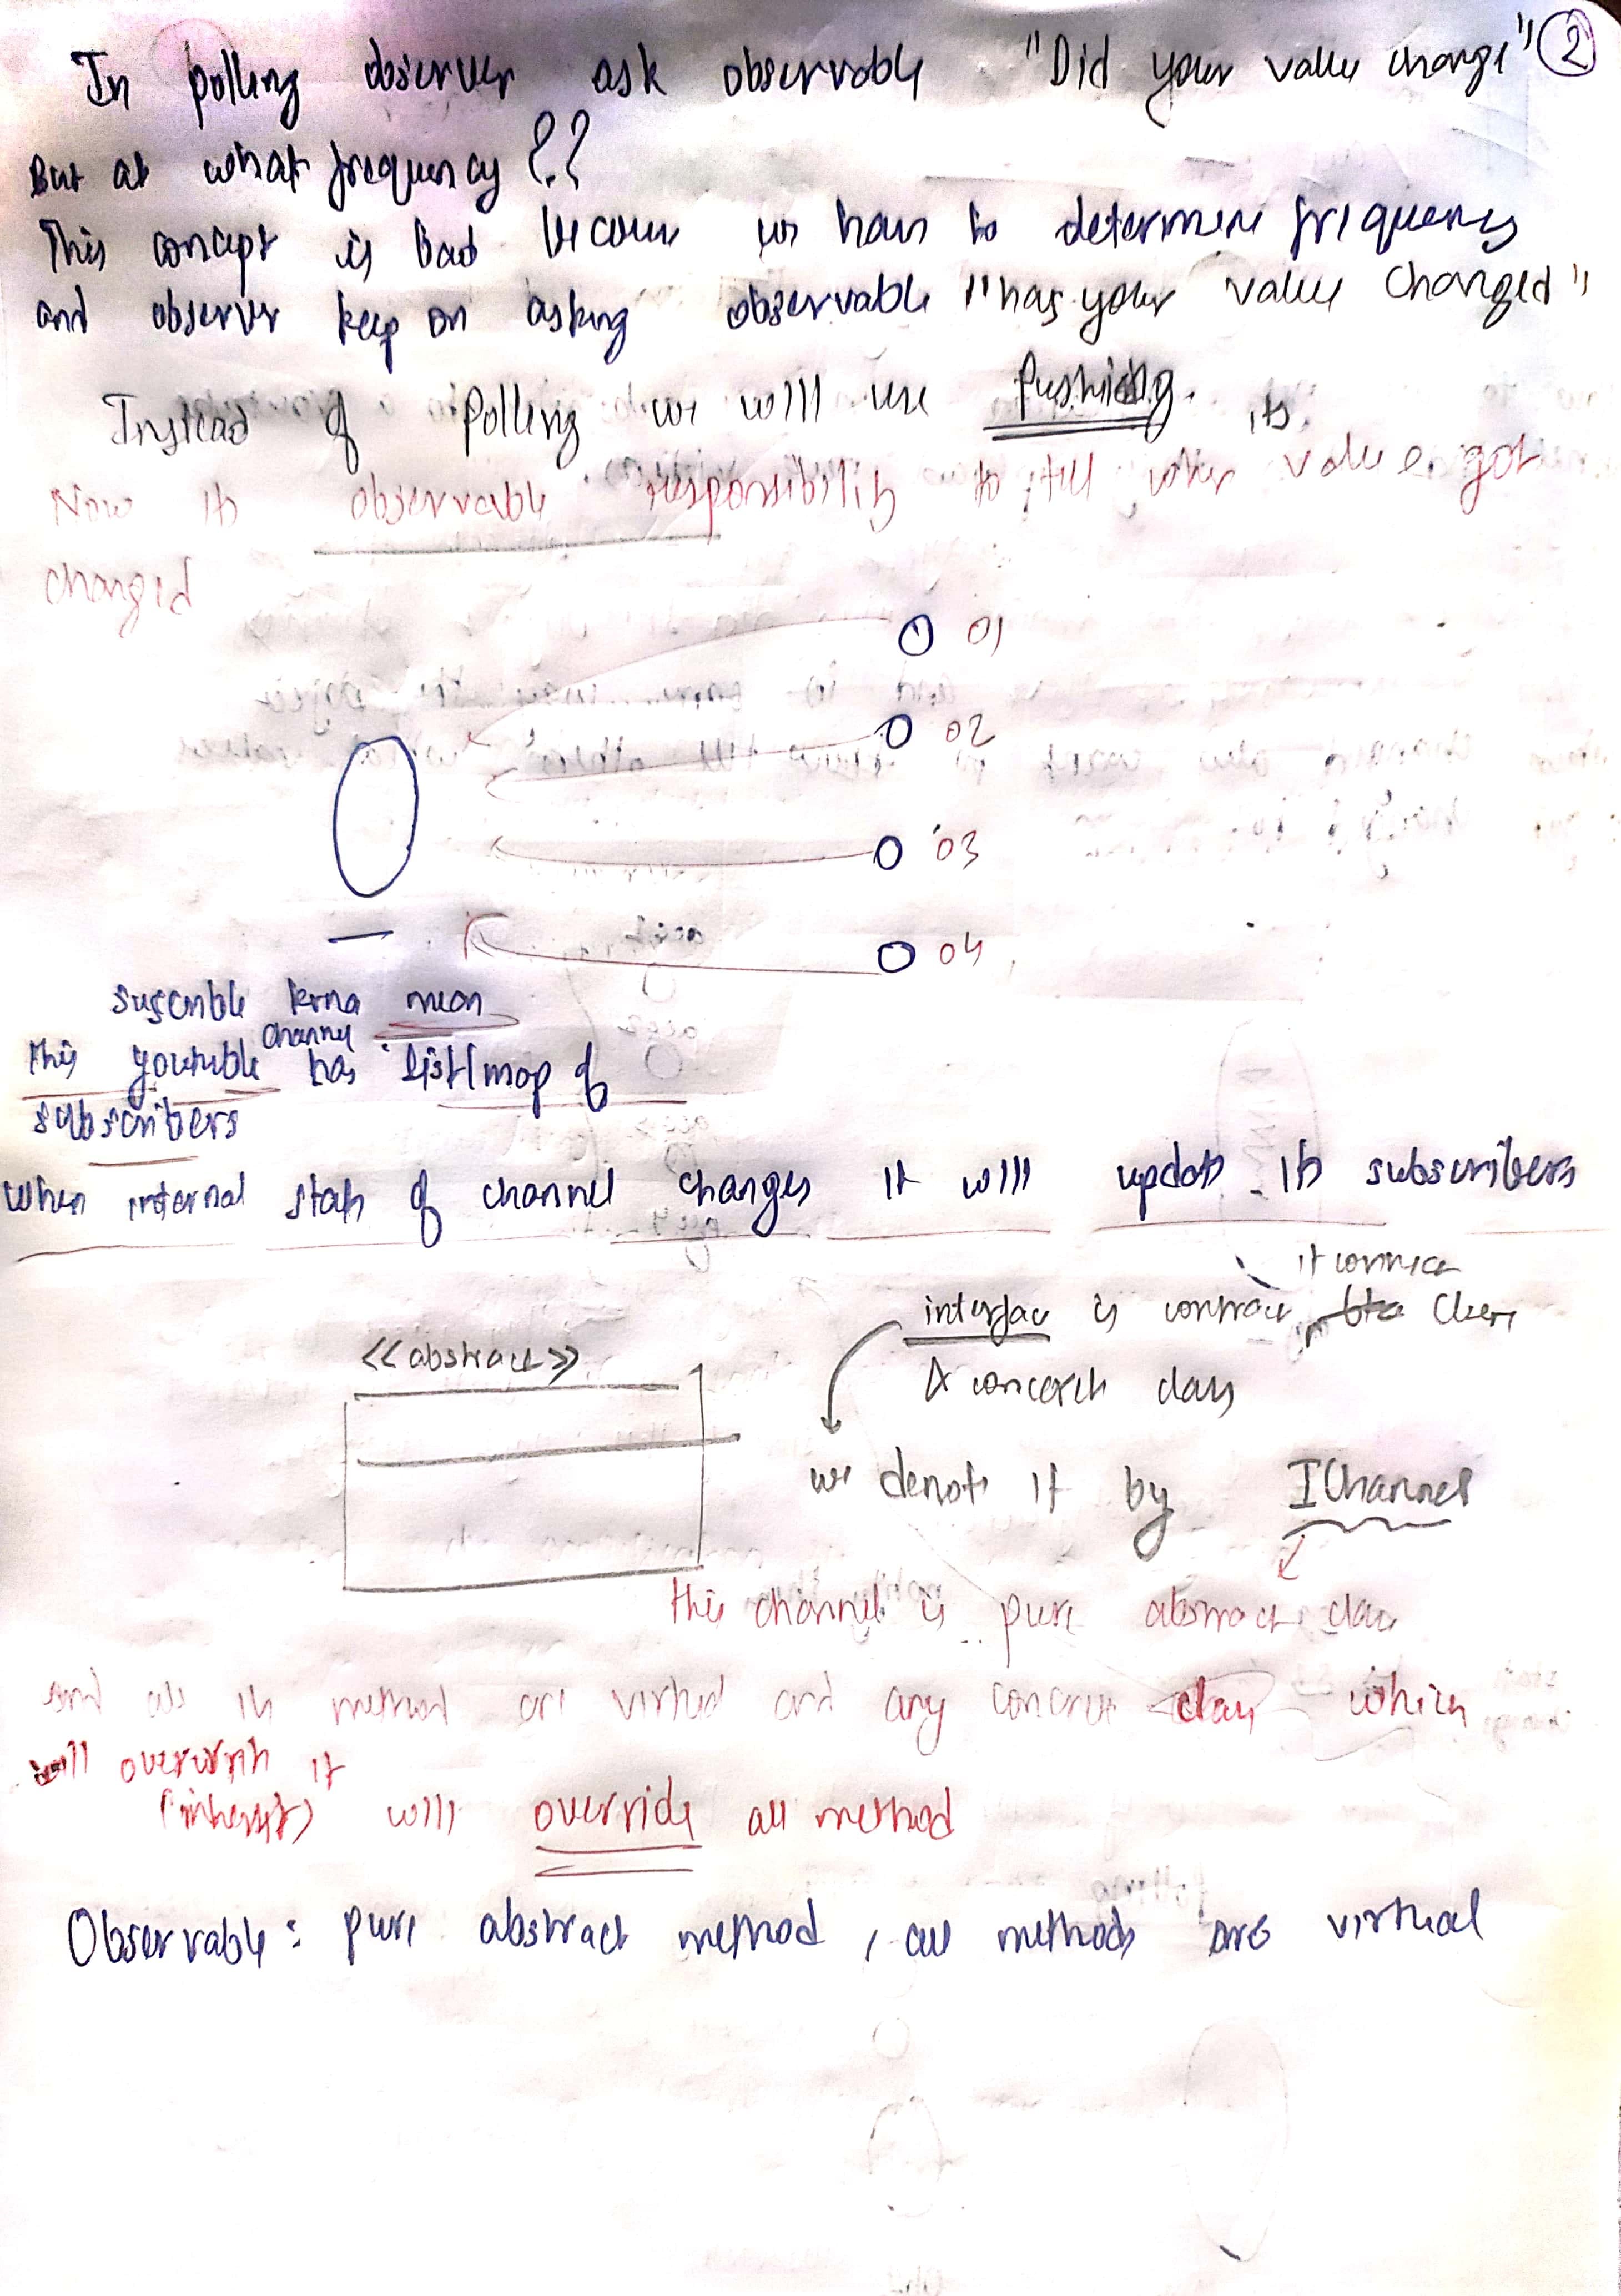 In polling observer ask observable "Did your value change" 2
But at what frequency ??
This concept is bad because we have to determine frequency
and observer keep on asking observable "has your value changed"
Instead of Polling we will use Pushing.
Now its observable responsibility to tell when its value got
changed
O1
O2
O3
O4
suscrible krna mean
This youtube channel has list/map of
subscribers
When internal state of channel changes it will update its subscribers
it connect
<<abstract>>
interface is contract btw client
& concrete class
we denote it by IChannel
this channel is pure abstract class
and all its method are virtual and any concrete class which
will overwrite it
(inherit) will override all method
Observable: pure abstract method, all methods are virtual